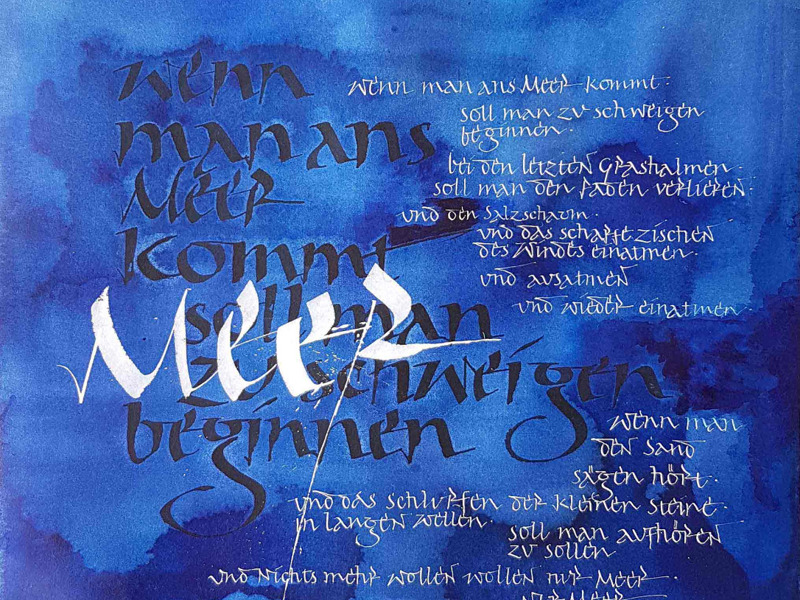 wenn
man ans
Meer
kommt
soll man
zu schweigen
beginnen
Meer
wenn man ans Meer kommt.
soll man zu schweigen
beginnen.
bei den letzten Grashalmen.
soll man den faden verlieren.
und den Salzschaum.
und das scharfe zischen
des Windes einatmen.
und ausatmen
und wieder einatmen.
wenn man
den Sand
sägen hört.
und das schlurfen der kleinen steine.
in langen wellen.
soll man aufhören
zu sollen
und nichts mehr wollen wollen nur Meer.
nur Meer